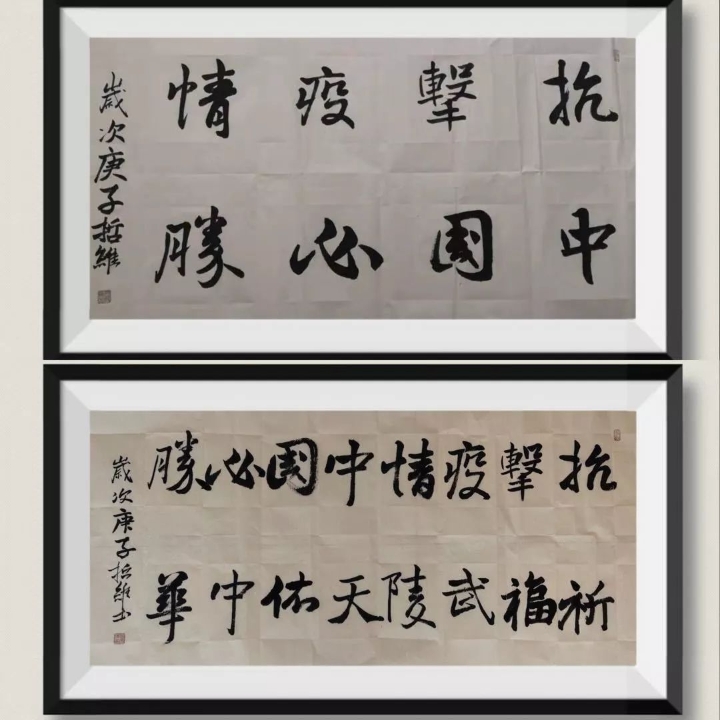 抗擊疫情
中國必勝
歲次庚子哲維
抗擊疫情中國必勝
祈福武陵天佑中華
歲次庚子哲維士